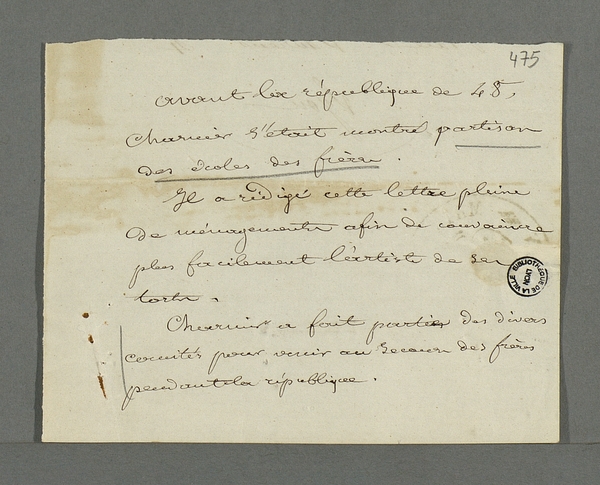 475
avant la république de 48,
Charnier s'était montré partisan
des écoles des frères.
Il a rédigé cette lettre pleine
de ménagements afin de convaincre
plus facilement l'artiste de ses
torts.
Charnier a fait partie des divers
comités pour venir au secours des frères
pendant la république.
BIBLIOTHÈQUE DE LA VILLE
LYON